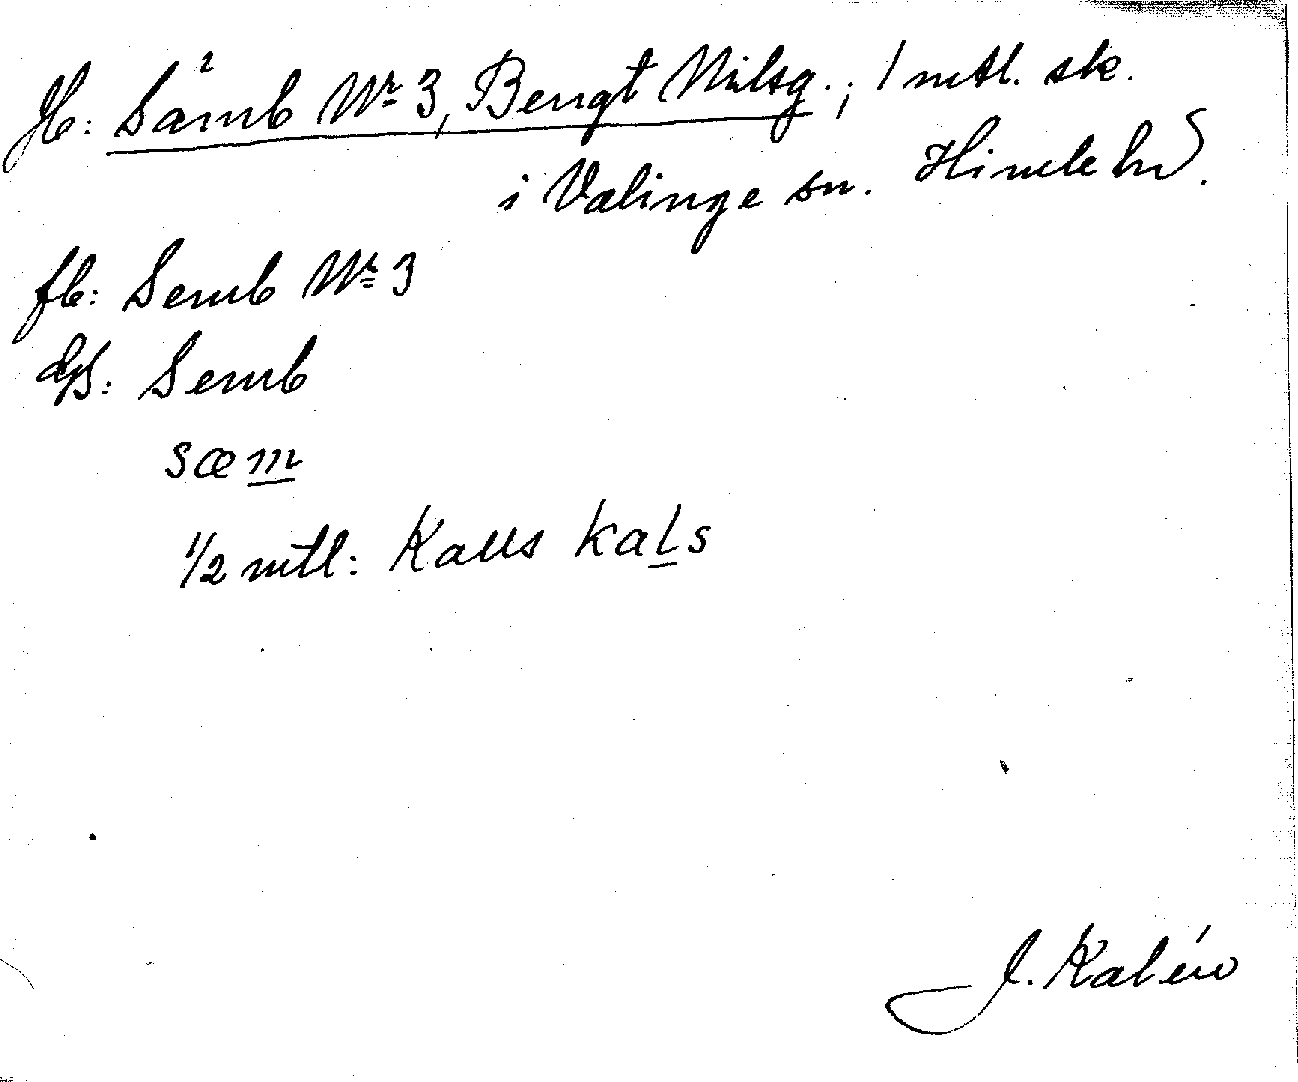 Jb: Sämb Nr 3, Bengt Nilsg.; 1 mtl. sk.
i Valinge sn. Himle hd.
fb: Semb Nr 3
GS: Semb
sæm
1/2 mtl: Kalls kals
J. Kalén